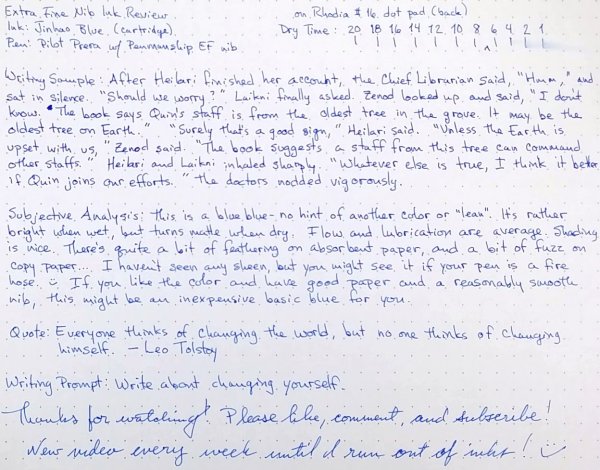 Extra Fine Nib Ink Review on Rhodia #16 dot pad (back)
Ink: Jinhao Blue (cartridge) Dry Time: 20 18 16 14 12 10 8 6 4 2 1
Pen: Pilot Prera w/ Penmanship EF nib
Writing Sample: After Heilari finished her account, the Chief Librarian said, "Hmm," and
sat in silence. "Should we worry?" Laikni finally asked. Zenod looked up and said, "I don't
know. The book says Quin's staff is from the oldest tree in the grove. It may be the
oldest tree on Earth." "Surely that's a good sign," Heilari said. "Unless the Earth is
upset with us," Zenod said. "The book suggests a staff from this tree can command
other staffs." Heilari and Laikni inhaled sharply. "Whatever else is true, I think it better
if Quin joins our efforts." The doctors nodded vigorously.
Subjective Analysis: This is a blue blue - no hint of another color or "lean". It's rather
bright when wet, but turns matte when dry. Flow and lubrication are average. Shading
is nice. There's quite a bit of feathering on absorbent paper, and a bit of fuzz on
copy paper.... I haven't seen any sheen, but you might see it if your pen is a fire
hose. If you like the color and have good paper and a reasonably smooth
nib, this might be an inexpensive basic blue for you.
Quote: Everyone thinks of changing the world, but no one thinks of changing
himself. - Leo Tolstoy
Writing Prompt: Write about changing yourself.
Thanks for watching! Please like, comment, and subscribe!
New video every week until I run out of inks!